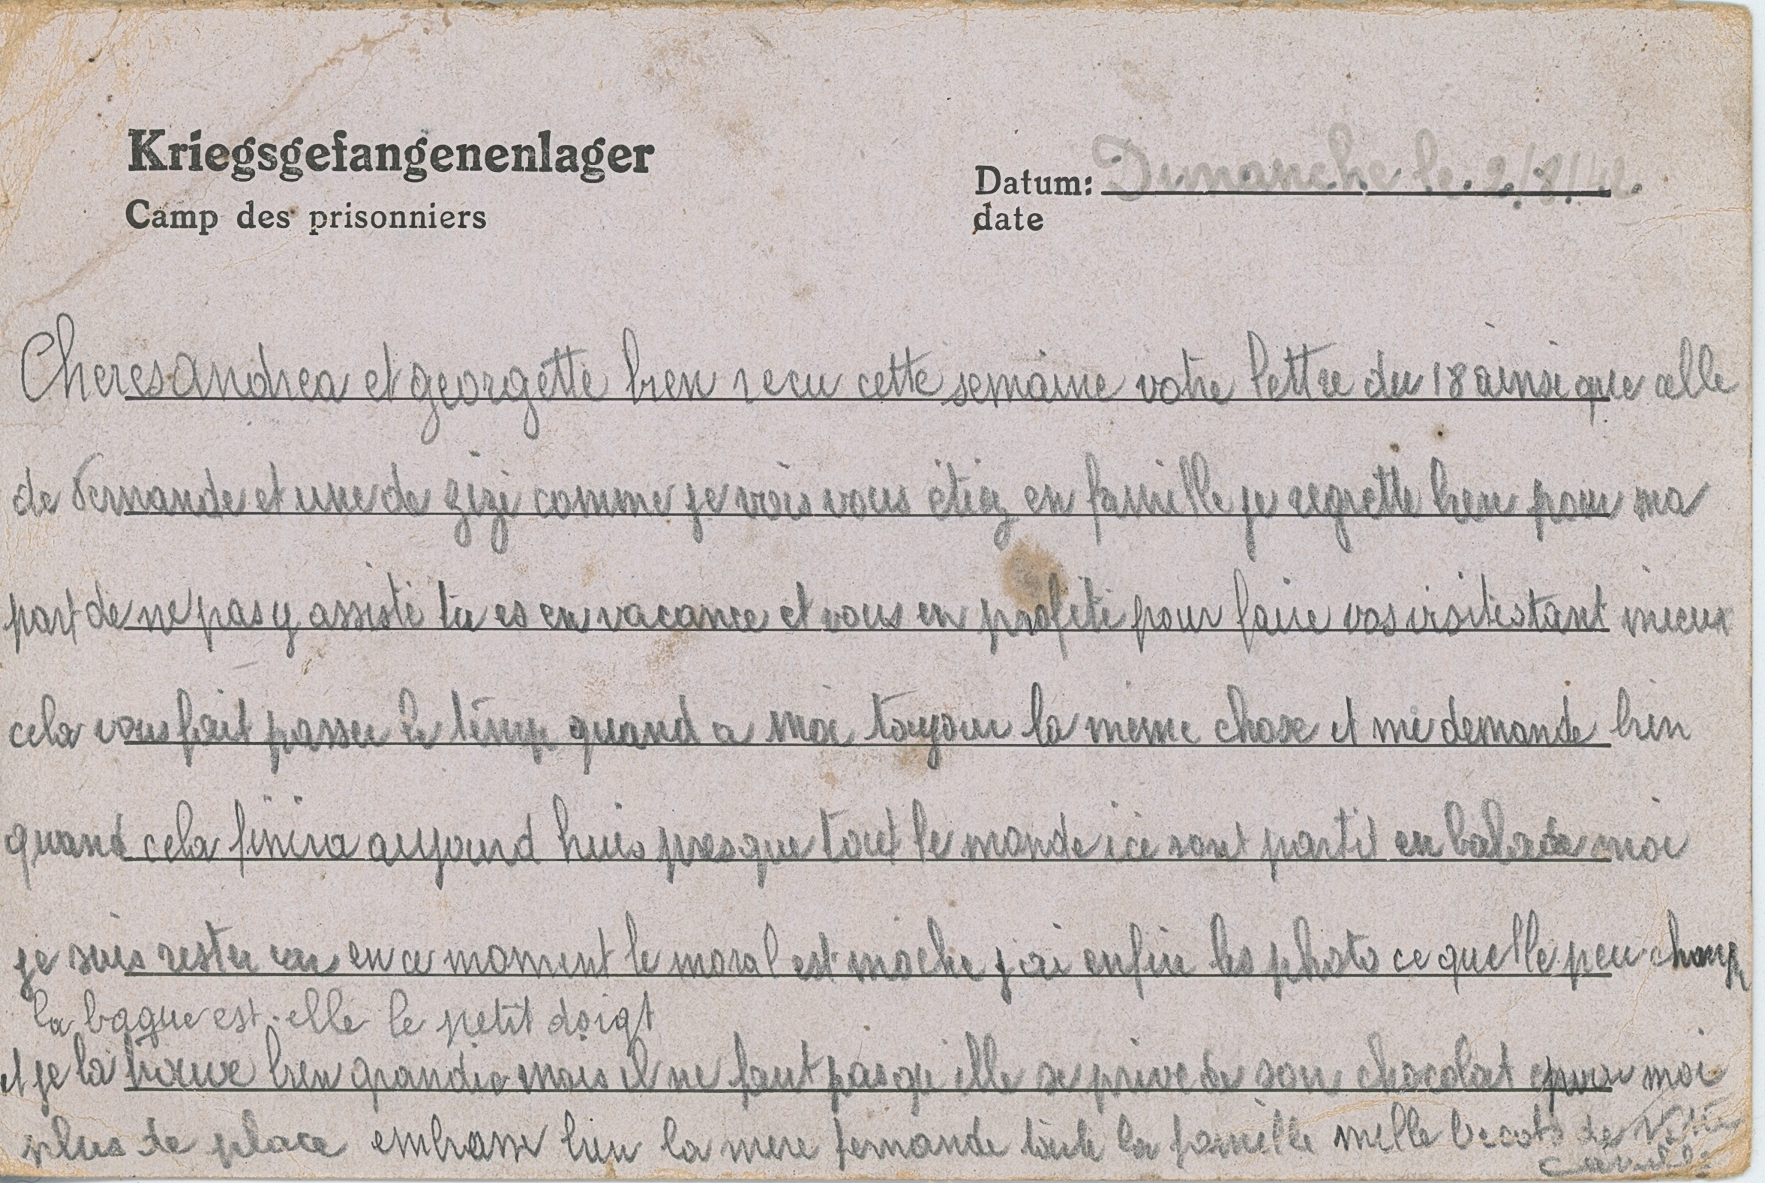 Kriegsgefangenenlager
Camp des prisonniers
Datum: Dimanche le 2/8/42.
date
Cheres Andrea et georgette bien recu cette semaine votre lettre du 18 ainsi que celle
de Fernande et une de zizi comme je vois vous étiez en famille je regrette bien pour ma
part de ne pas y assisté tu es en vacance et vous en profité pour faire vos visites tant mieux
cela vous fait passer le temp quand a moi toujour la meme chose et me demande bien
quand cela finira aujourd huis presque tout le monde ici sont partit en balade moi
je suis rester car en ce moment le moral est moche j ai enfin les photo ce quelle peu changé
la bague est-elle le petit doigt
et je la trouve bien grandie mais il ne faut pas qu elle se prive de son chocolat pour moi
plus de place embrasse bien la mere fernande toute la famille mille becots de votre